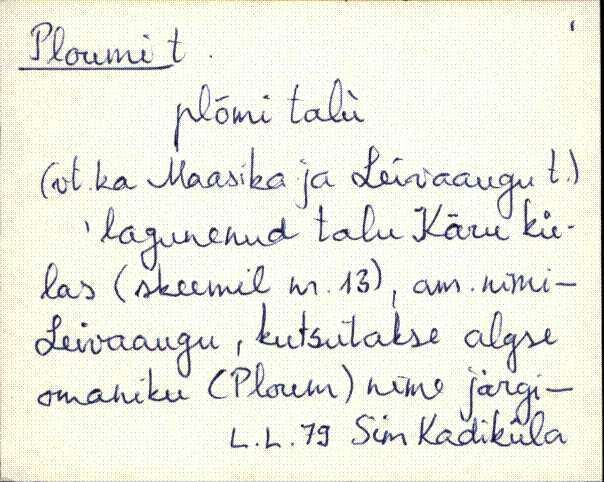 Ploumi t.
plōmi talù
(vt. ka Maasika ja Leivaaugu t.)
'lagunenud talu Käru kü-
las (skeemil nr. 13), am. nimi-
Leivaaugu, kutsutakse algse
omaniku (Ploum) nime järgi-
L.L. 79 Sim Kadiküla